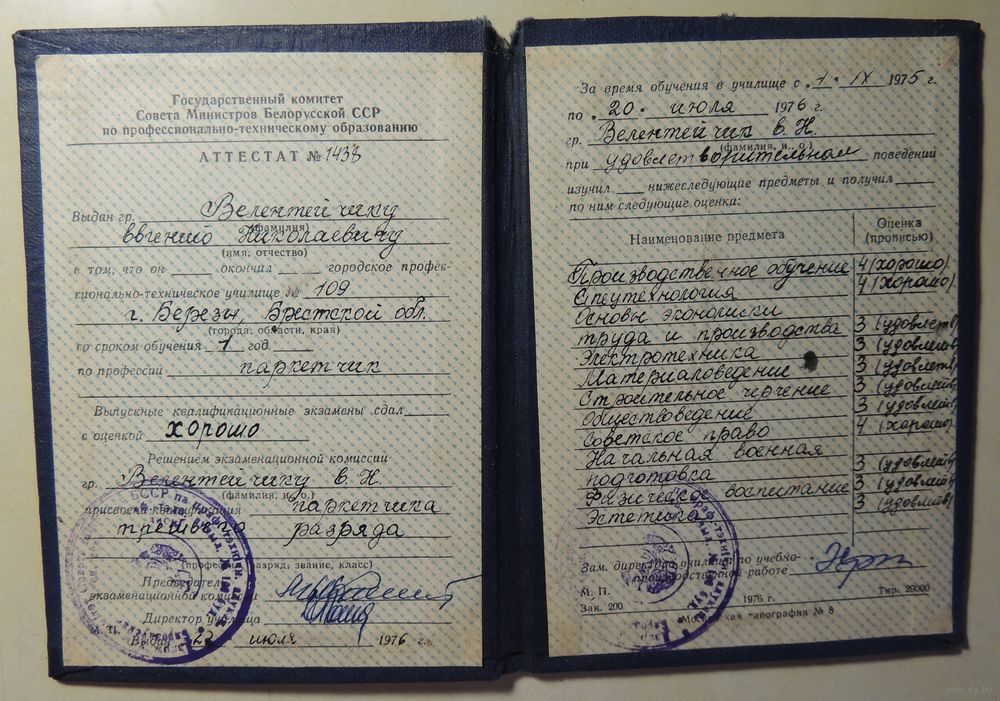 Государственный комитет
Совета Министров Белорусской ССР
по профессионально-техническому образованию
АТТЕСТАТ № 1438
Выдан гр. Велентейчику
(фамилия)
Евгению Николаевичу
(имя, отчество)
в том, что он окончил городское профес-
сионально-техническое училище № 109
г. Березы, Брестской обл.
(города, области, края)
со сроком обучения 1 год
по профессии паркетчик
Выпускные квалификационные экзамены сдал
с оценкой хорошо
Решением экзаменационной комиссии
гр. Велентейчику Е. Н.
(фамилия, и., о.)
присвоена квалификация паркетчика
третьего разряда
(профессия, разряд, звание, класс)
Председатель
экзаменационной комиссии
Директор училища
Выдан 22 июля 1976 г.
За время обучения в училище с „1“ IX 1975 г.
по „20“ июля 1976 г.
гр. Велентейчик Е. Н.
(фамилия, и., о.)
при удовлетворительном поведении
изучил нижеследующие предметы и получил
по ним следующие оценки:
Наименование предмета
Оценка
(прописью)
Производственное обучение 4 (хорошо)
Спецтехнология 4 (хорошо)
Основы экономики
труда и производства 3 (удовлетв)
Электротехника 3 (удовлетв)
Материаловедение 3 (удовлетв)
Строительное черчение 3 (удовлетв)
Обществоведение 3 (удовлетв)
Советское право 4 (хорошо)
Начальная военная
подготовка 3 (удовлетв)
Физическое воспитание 3 (удовлетв)
Эстетика 3 (удовлетв)
Зам. директора училища по учебно-
производственной работе
М. П.
Зак. 200 1976 г. Тир. 29000
Московская типография № 8
www.ay.by